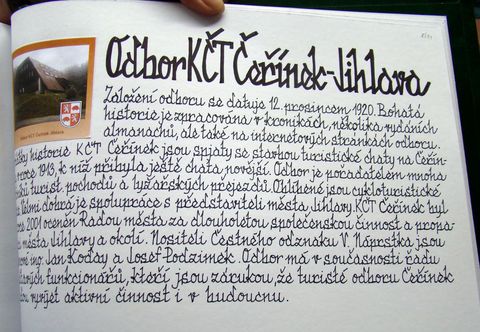 Odbor KČT Čeřínek-Jihlava
Založení odboru se datuje 12. prosincem 1920. Bohatá
historie je zpracována v kronikách, několika vydáních
almanachů, ale také na internetových stránkách odboru.
historie KČT Čeřínek jsou spjaty se stavbou turistické chaty na Čeřín-
roce 1913, k níž přibyla ještě chata novější. Odbor je pořadatelem mnoha
turist. pochodů a lyžařských přejezdů. Oblíbené jsou cykloturistické
Velmi dobrá je spolupráce s představiteli města Jihlavy. KČT Čeřínek byl
2001 oceněn Radou města za dlouholetou společenskou činnost a propa-
města Jihlavy a okolí. Nositeli Čestného odznaku V. Náprstka jsou
ing. Jan Koday a Josef Podzimek. Odbor má v současnosti řadu
funkcionářů, kteří jsou zárukou, že turisté odboru Čeřínek
aktivní činnost i v budoucnu.